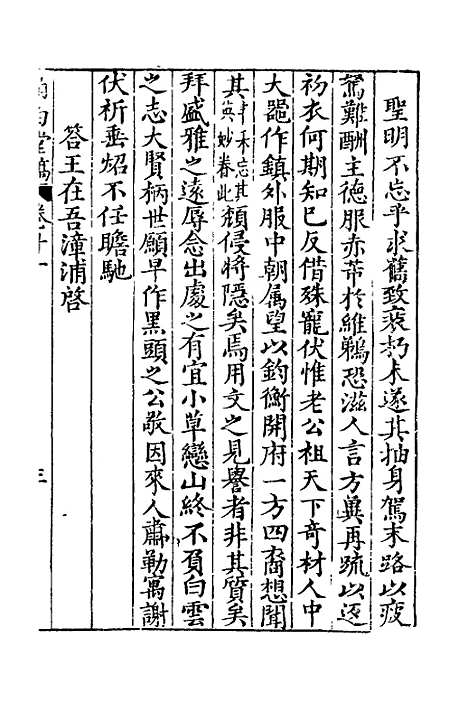 聖明不忘乎求舊致衰朽未遂其抽身駕末路以疲
駑難酬主德服赤芾於維鵜恐滋人言方冀再疏以返
初衣何期知已反借殊寵伏惟老公祖天下奇材人中
大器作鎮外服中朝属望以鈞衡開府一方四裔想聞
其英妙眷此頹侵將隱矣焉用文之見譽者非其質矣
拜盛雅之遠辱念出處之有宜小草戀山終不負白雲
之志大賢柄世願早作黑頭之公敬因來人肅勒寓謝
伏祈垂炤不任瞻馳
答王在吾漳浦啓
堂稿
卷十一
三